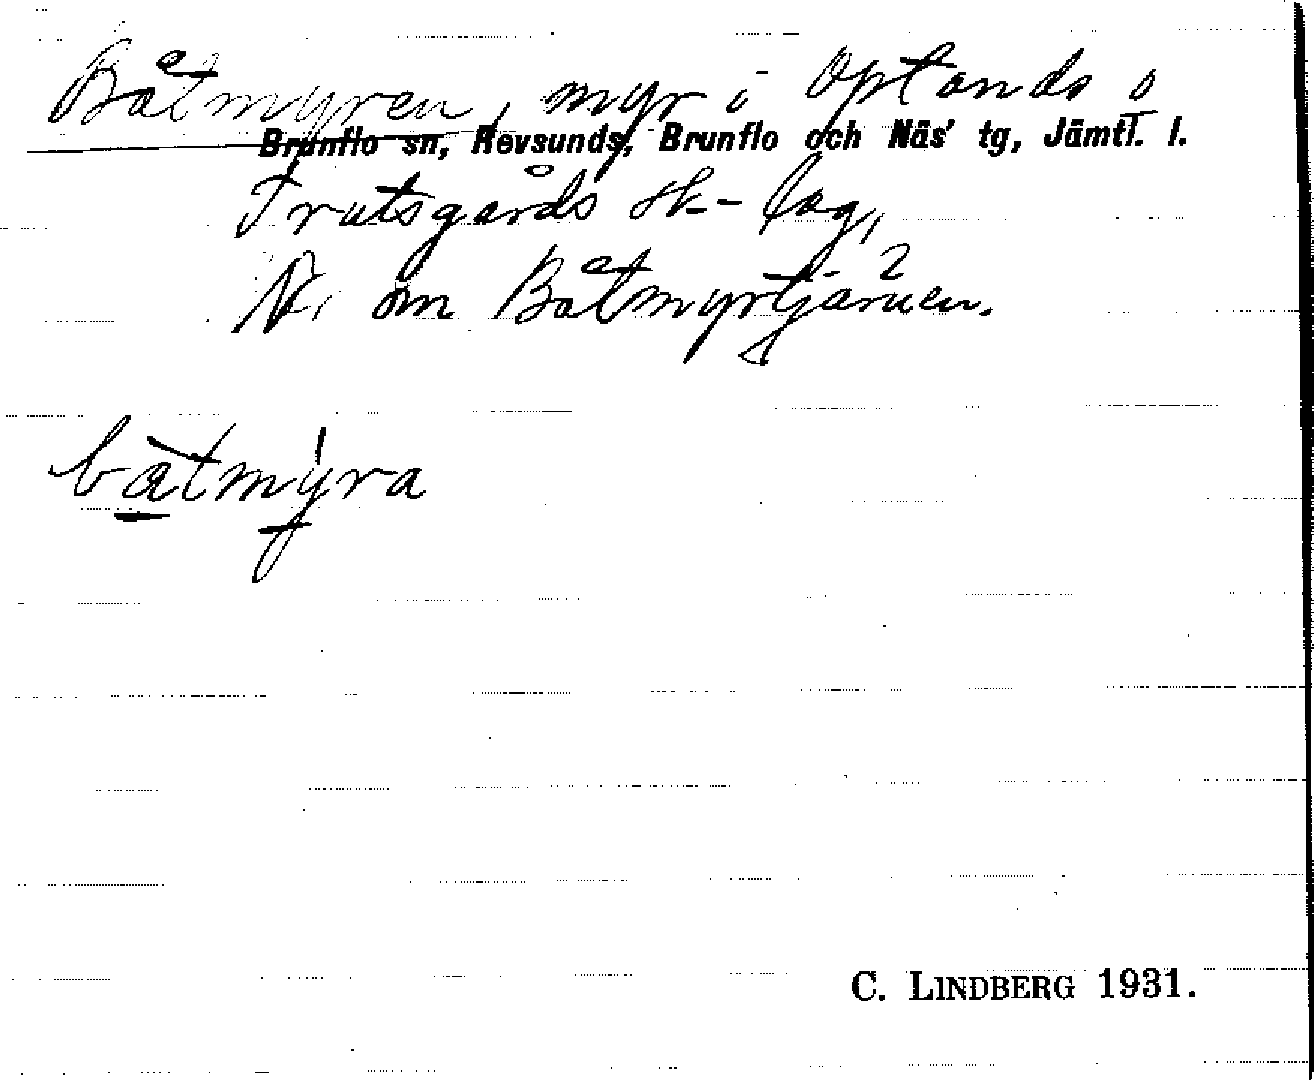 Båtmyren, myr i Optands o
Brunflo sn, Revsunds, Brunflo och Näs' tg, Jämtl. l.
Trutsgårds sk-lag,
N. om Båtmyrtjärnen.
båtmýra
C. LINDBERG 1931.